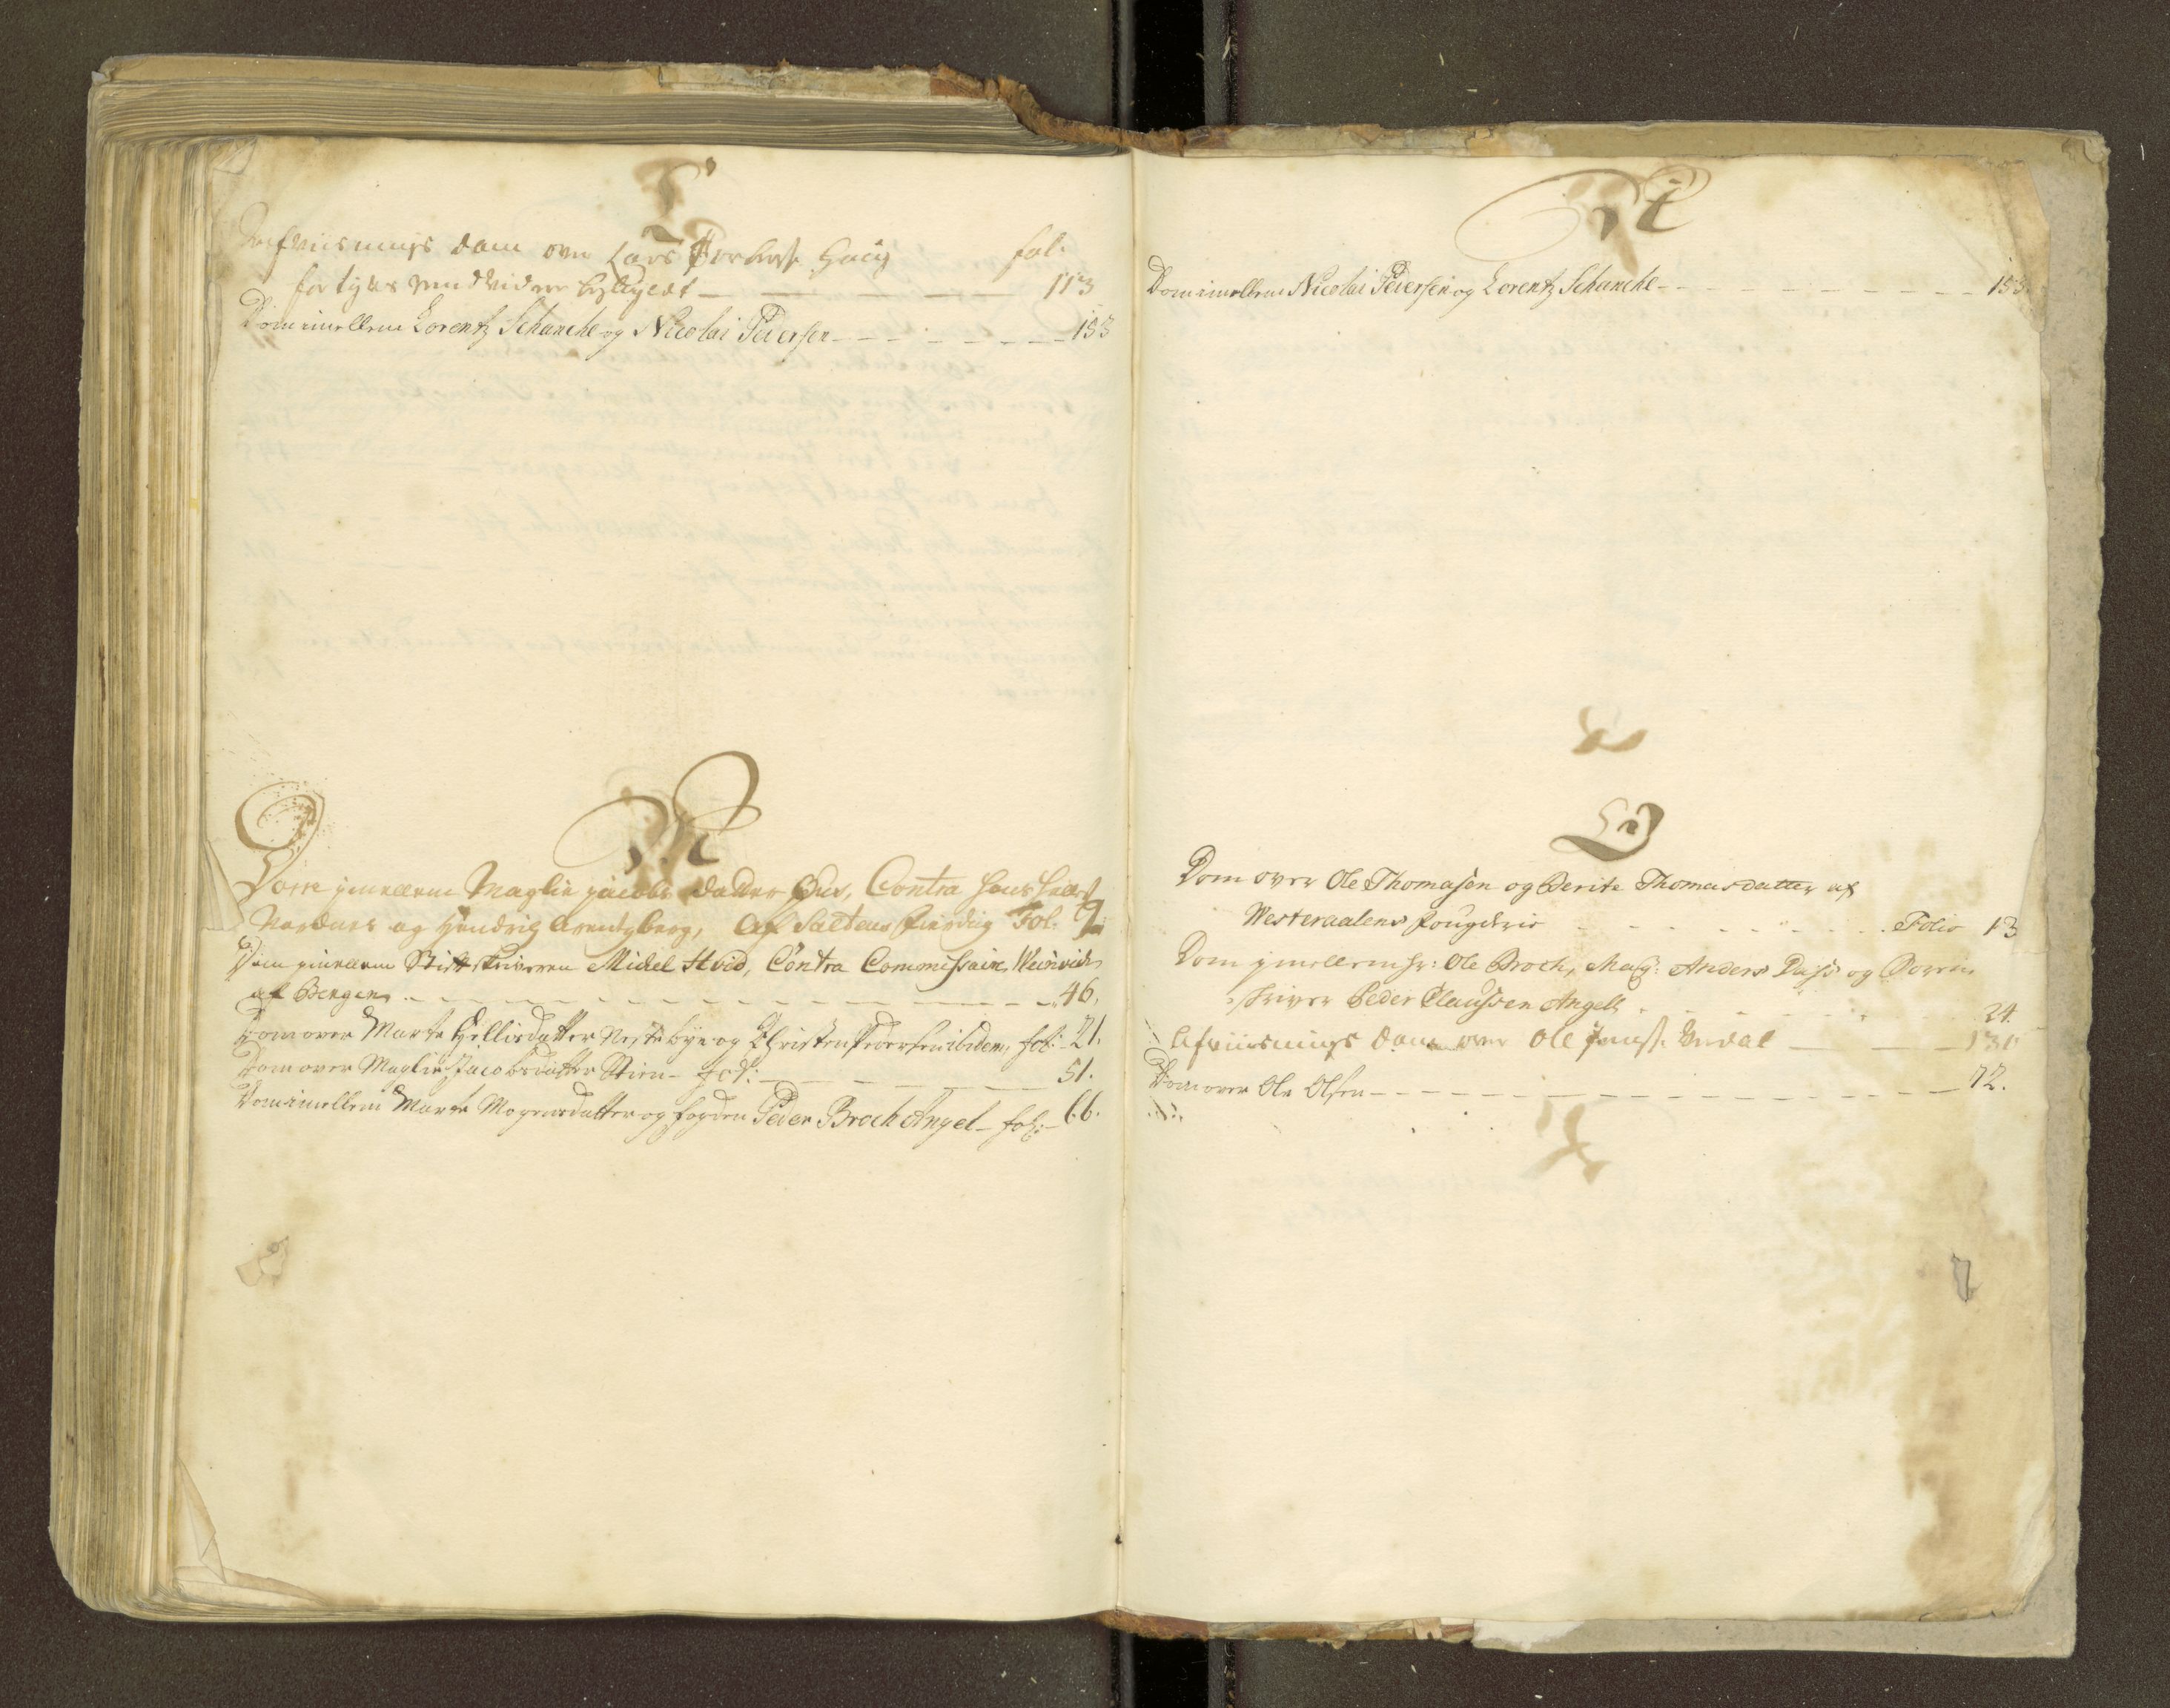 L
Afviisnings dom over Lars fol.
for 113
Dom imellem Lorentz Schanche og Nicolai Pedersen 153
M
Dom imellem Maglie Jacobs datter Hus, Contra
Nordnes og Hendrig Arentzberg, Af Saltens Fierding Fol. 9
Dom imellem Stiftskriveren Mickel Hvid, Contra Commissaire Weinwich
af Bergen 46.
Dom over Marte Hellisdatter Nestebye og Christen Pedersen ibidem, fol: 21.
Dom over Maglie Jacobsdatter Stien - Fol: 51.
Dom imellem Marte Mogensdatter og fogden Peder Broch Angel - fol: 66.
N
Dom imellem Nicolai Pedersen og Lorentz Schanche 153
O
Dom over Ole Thomasen og Berite Thomasdatter af
Westeraalens fougderie Folio 13
Dom imellem Hr: Ole Broch, Mag: Anders Dass og Soren
skriver Peder Claussen Angell 24.
Afviisnings dom over Ole 130
Dom over Ole Olsen 72.